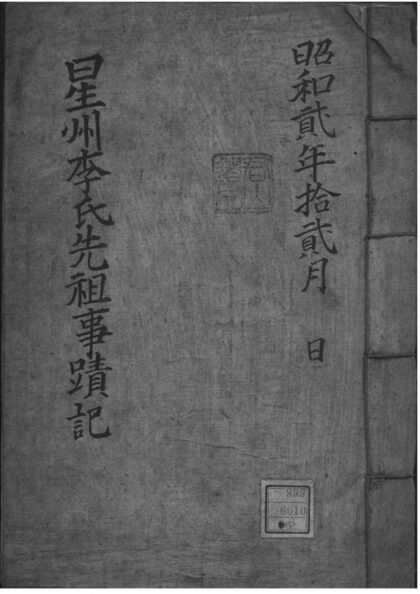 昭和貳年拾貳月 日
曰星州李氏先祖事蹟記
6010